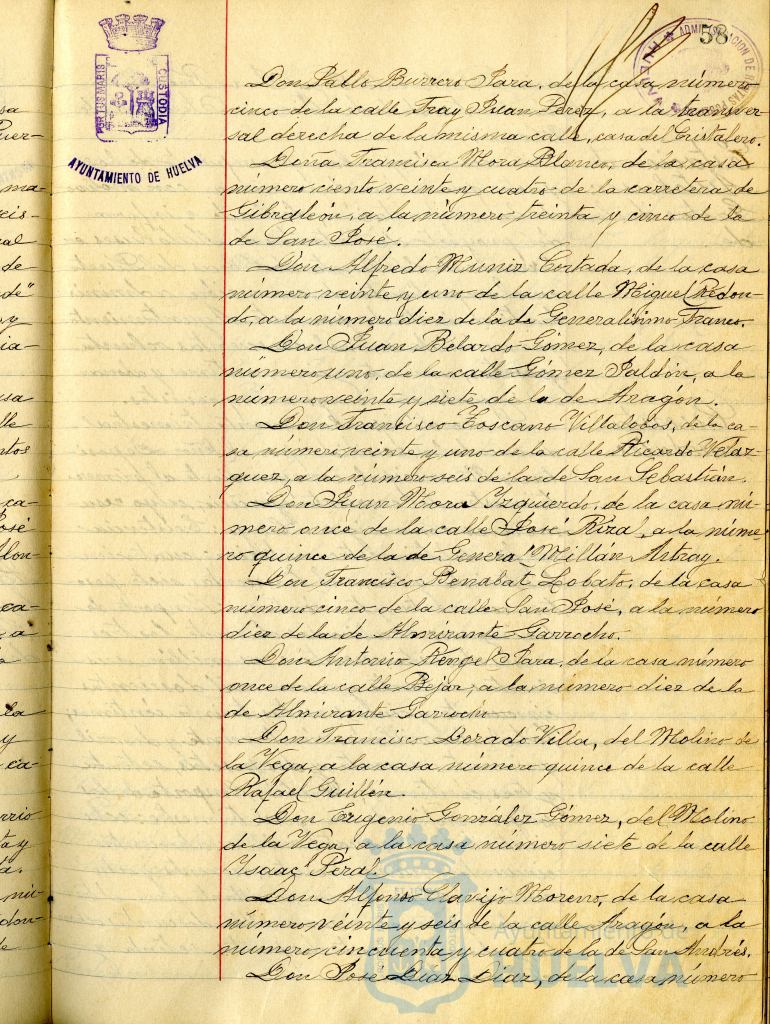 58
PORTUS MARIS
CUSTODIA
AYUNTAMIENTO DE HUELVA
ADMINISTRACION DE RENTAS
HUELVA
Don Pablo Burrero Jara, de la casa número
cinco de la calle Fray Juan Pérez, a la transver-
sal derecha de la misma calle, casa del Cristalero.
Doña Francisca Mora Blanco, de la casa
número ciento veinte y cuatro de la carretera de
Gibraleón, a la número treinta y cinco de la
de San José.
Don Alfredo Muniz Cortada, de la casa
número veinte y uno de la calle Miguel Redon-
do, a la número diez de la de Generalísimo Franco.
Don Juan Belardo Gómez, de la casa
número uno, de la calle Gómez Jaldón, a la
número veinte y siete de la de Aragón.
Don Francisco Toscano Villalobos, de la ca-
sa número veinte y uno de la calle Ricardo Velaz-
quez, a la número seis de la de San Sebastián.
Don Juan Mora Izquierdo, de la casa nú-
mero once de la calle José Rizal, a la núme-
ro quince de la de General Millán Astray.
Don Francisco Benabat Lobato, de la casa
número cinco de la calle San José, a la número
diez de la de Almirante Garrocho.
Don Antonio Rengel Jara, de la casa número
once de la calle Bejar, a la número diez de la
de Almirante Garrocho
Don Francisco Dorado Villa, del Molino de
la Vega, a la casa número quince de la calle
Rafael Guillén.
Don Eugenio González Gómez, del Molino
de la Vega, a la casa número siete de la calle
Isaac Peral.
Don Alfonso Clavijo Moreno, de la casa
número veinte y seis de la calle Aragón, a la
número cincuenta y cuatro de la de San Andrés.
Don José Diaz Diaz, de la casa número
Ayuntamiento de
HUELVA